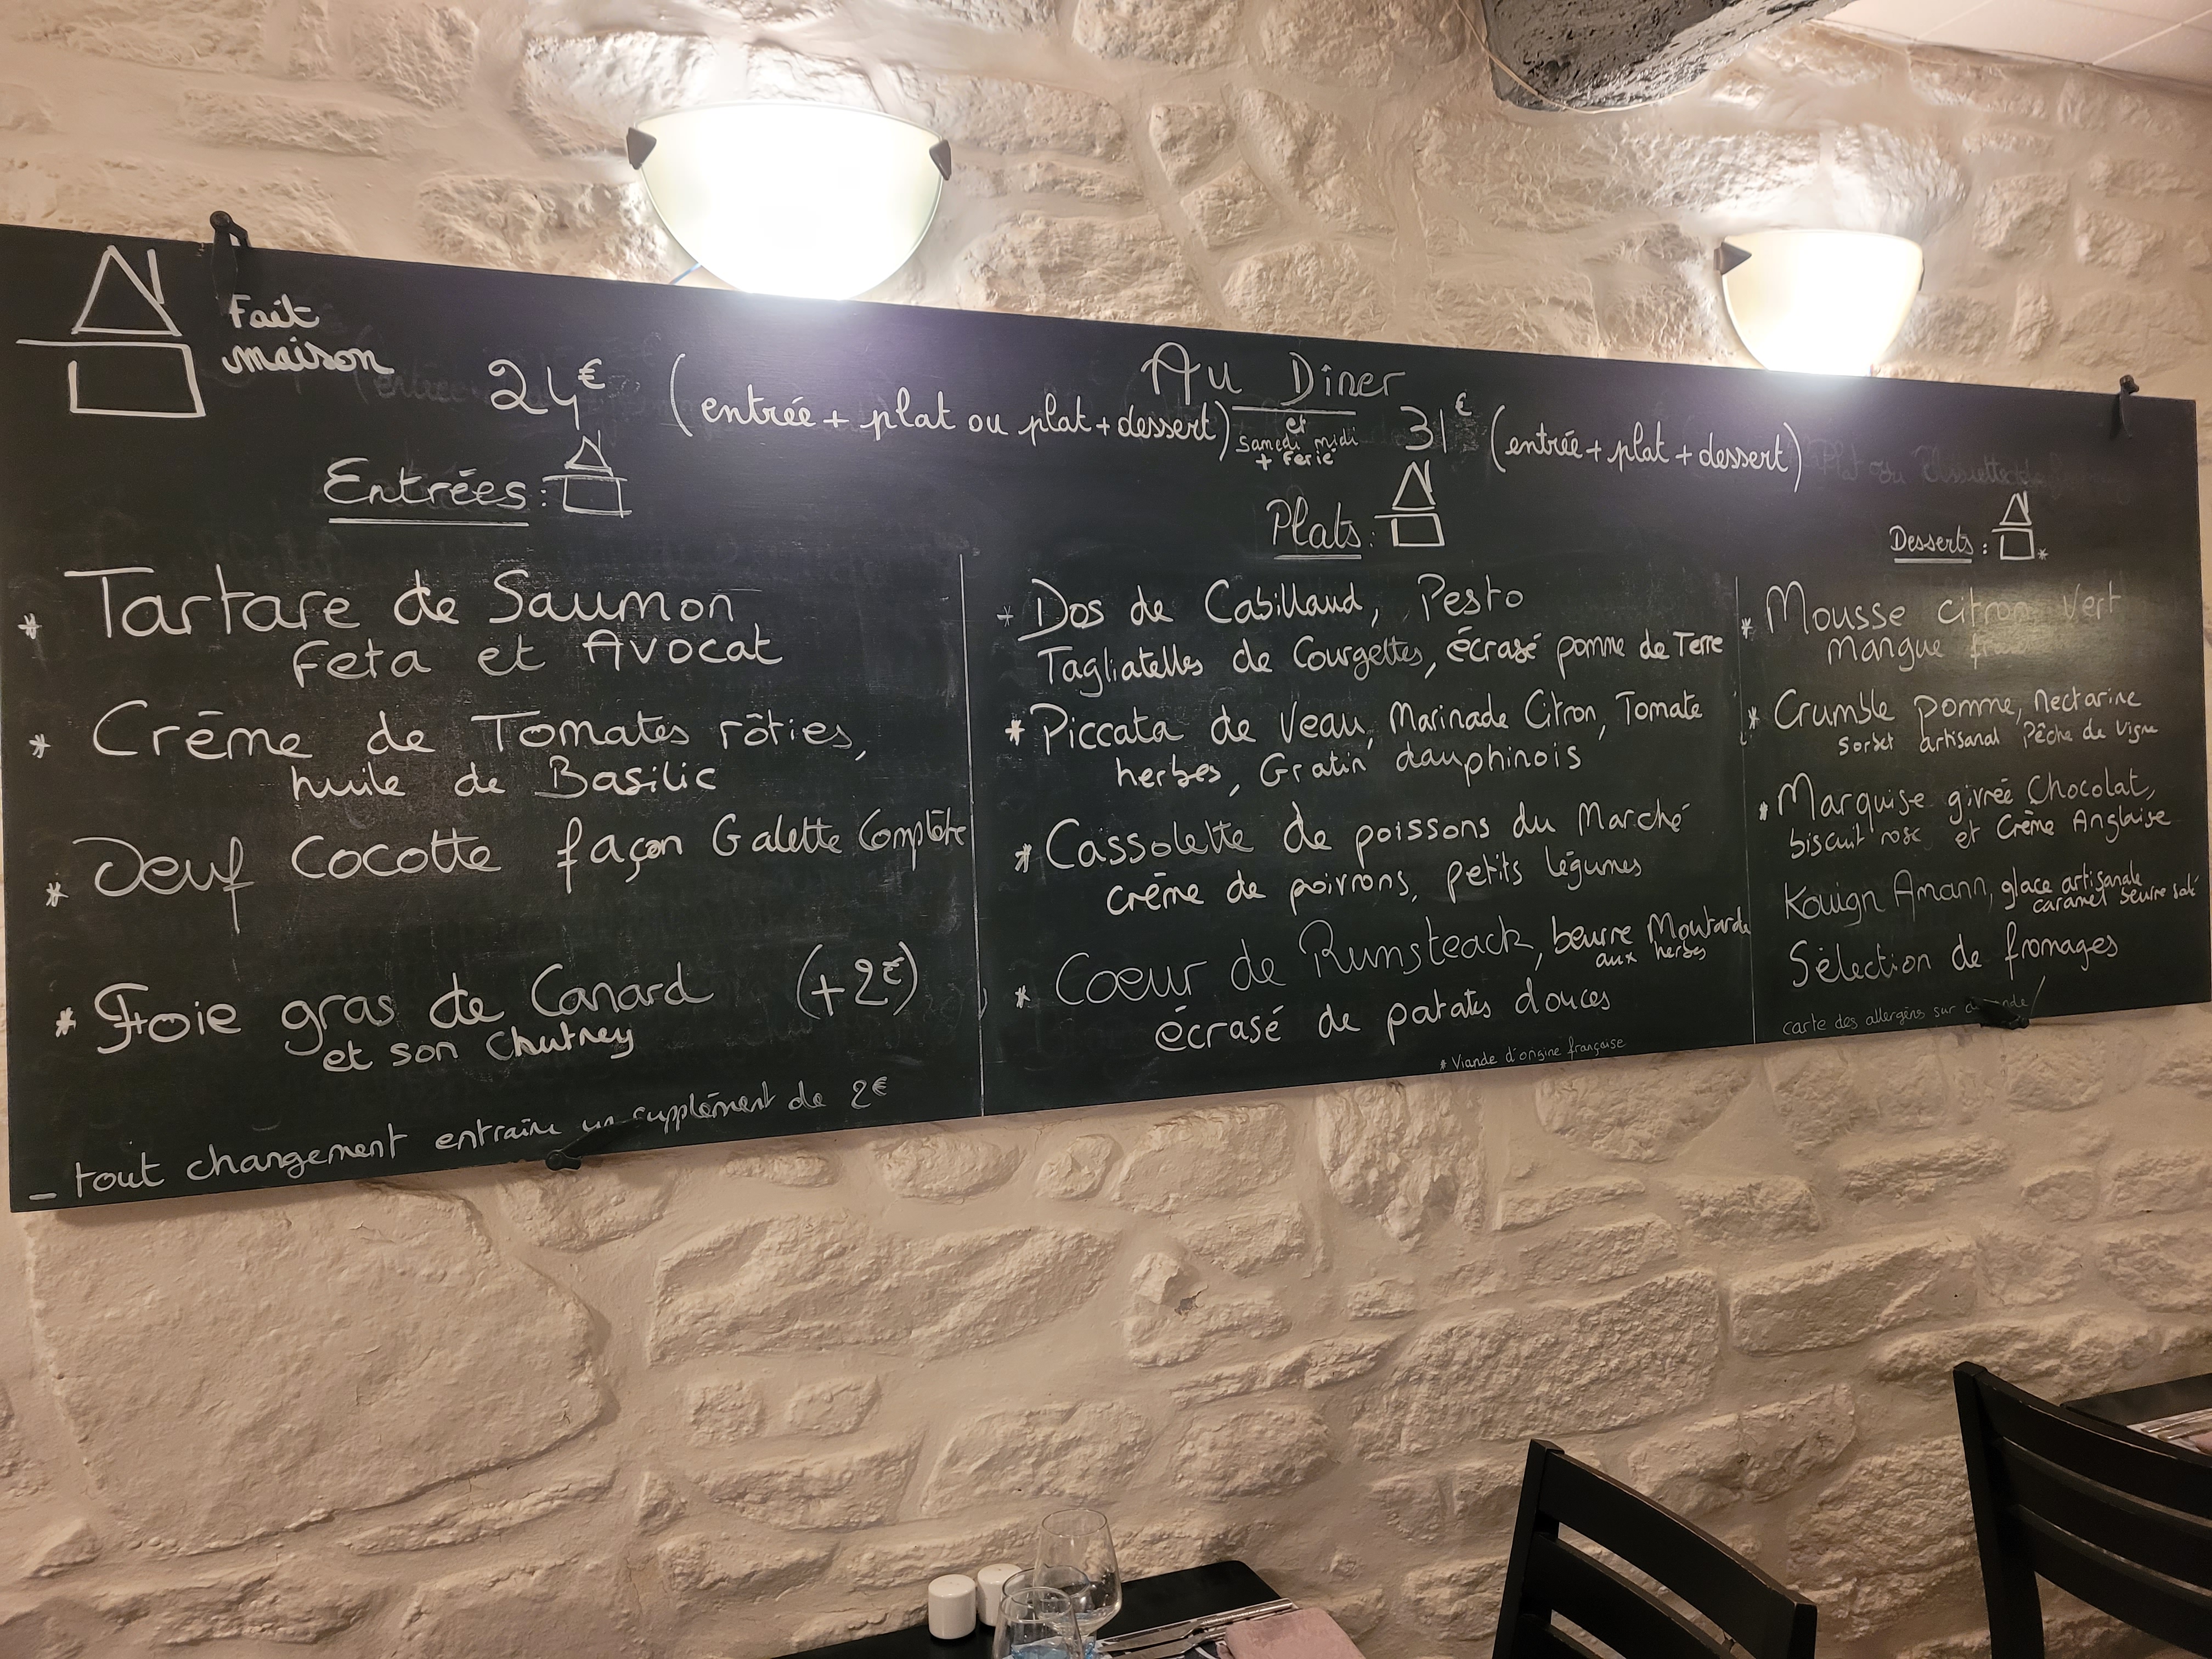 Fait
maison
Au Dîner
24€ (entrée + plat ou plat + dessert)
et
Samedi midi
+ Ferié
31€ (entrée + plat + dessert)
Entrées :
* Tartare de Saumon
Feta et Avocat
* Crème de Tomates rôties,
huile de Basilic
* Oeuf Cocotte façon Galette Complète
* Foie gras de Canard (+2€)
et son Chutney
- tout changement entraine un supplément de 2€
Plats :
* Dos de Cabillaud, Pesto
Tagliatelles de Courgettes, écrasé pomme de Terre
* Piccata de Veau, Marinade Citron, Tomate
herbes, Gratin dauphinois
* Cassolette de poissons du Marché
crème de poivrons, petits légumes
* Coeur de Rumsteack, beurre Moutarde
aux herbes
écrasé de patates douces
* Viande d'origine française
Desserts : *
* Mousse citron vert
mangue
* Crumble pomme, nectarine
sorbet artisanal Pêche de Vigne
* Marquise givrée Chocolat,
biscuit rose et Crème Anglaise
Kouign Amann, glace artisanale
caramel beurre salé
Sélection de fromages
carte des allergèns sur